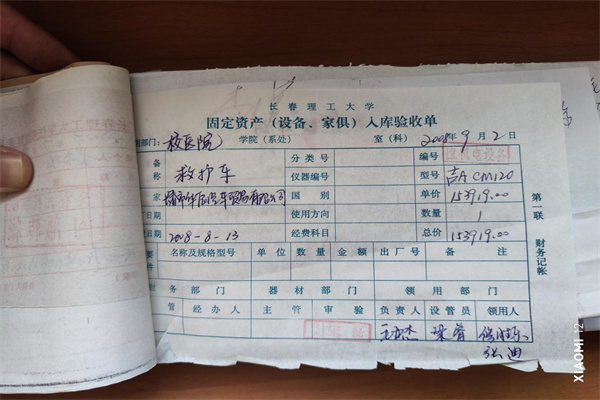 长春理工大学
固定资产（设备、家俱）入库验收单
用部门：校医院 学院（系处） 室（科） 2008年9月2日
备 分类号 编号
称 救护车 仪器编号 型号 吉A CM120
家 国别 单价 153919.00
使用方向 数量 1
日期 2008-8-13 经费科目 总价 153919.00
要 名称及规格型号 单位 数量 金额 出厂号 备注
件
财务部门 器材部门 领用部门
管 经办人 主管 审验 负责人 设管员 领用人
张迪
第一联 财务记帐
XIAOMI 12